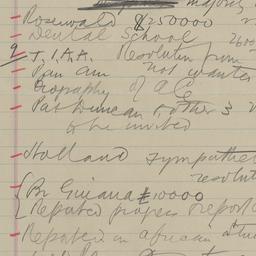 majority
Rosenwald $250000
Dental School 2600
9 J.I.A.A. Resolution from
Pan Am not wanted
Biography of A C
Pat Duncan & other 3
to be invited
Holland sympathetic
resolut
Br Guiana £10000
Repated progress report
Repated in African